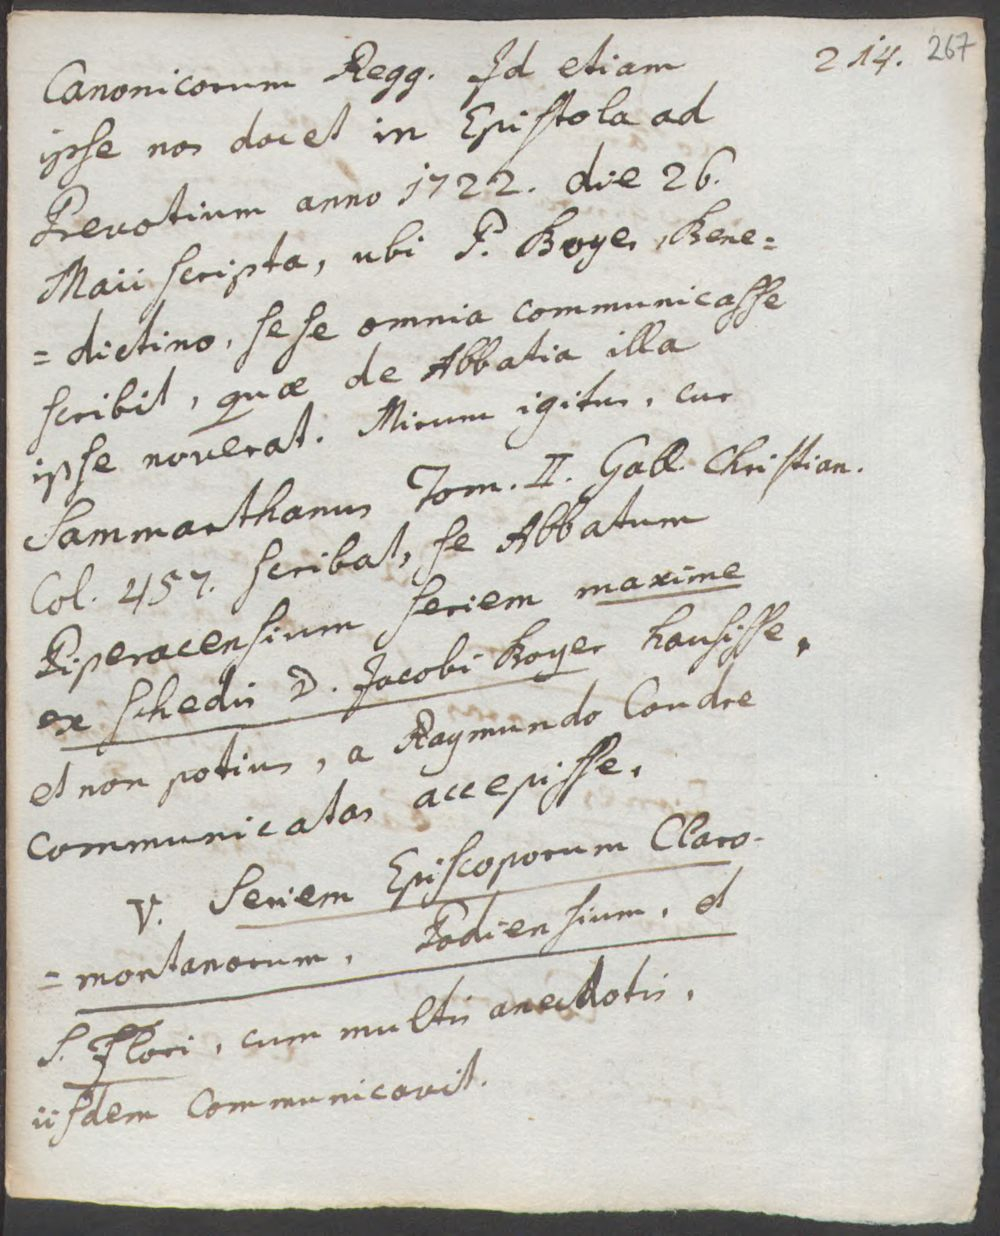 214. 267
Canonicorum Regg. Id etiam
ipse nos docet in Epistola ad
Prevotium anno 1722. die 26.
Maii scripta, ubi P. Boyer, Bene=
=dictino, sese omnia communicasse
scribit, quæ de Abbatia illa
ipse noverat. Mirum igitur, cur
Sammarthanus Tom. II. Gall. Christian.
Col. 457. scribat, se Abbatum
Piperacensium seriem maxime
ex schedis D. Jacobi Boyer hausisse,
et non potius, a Raymundo Coudre
communicatas accepisse.
V. Seriem Episcoporum Claro-
=montanorum, Podiensium, et
S. Flori, cum multis anecdotis,
iisdem communicavit.